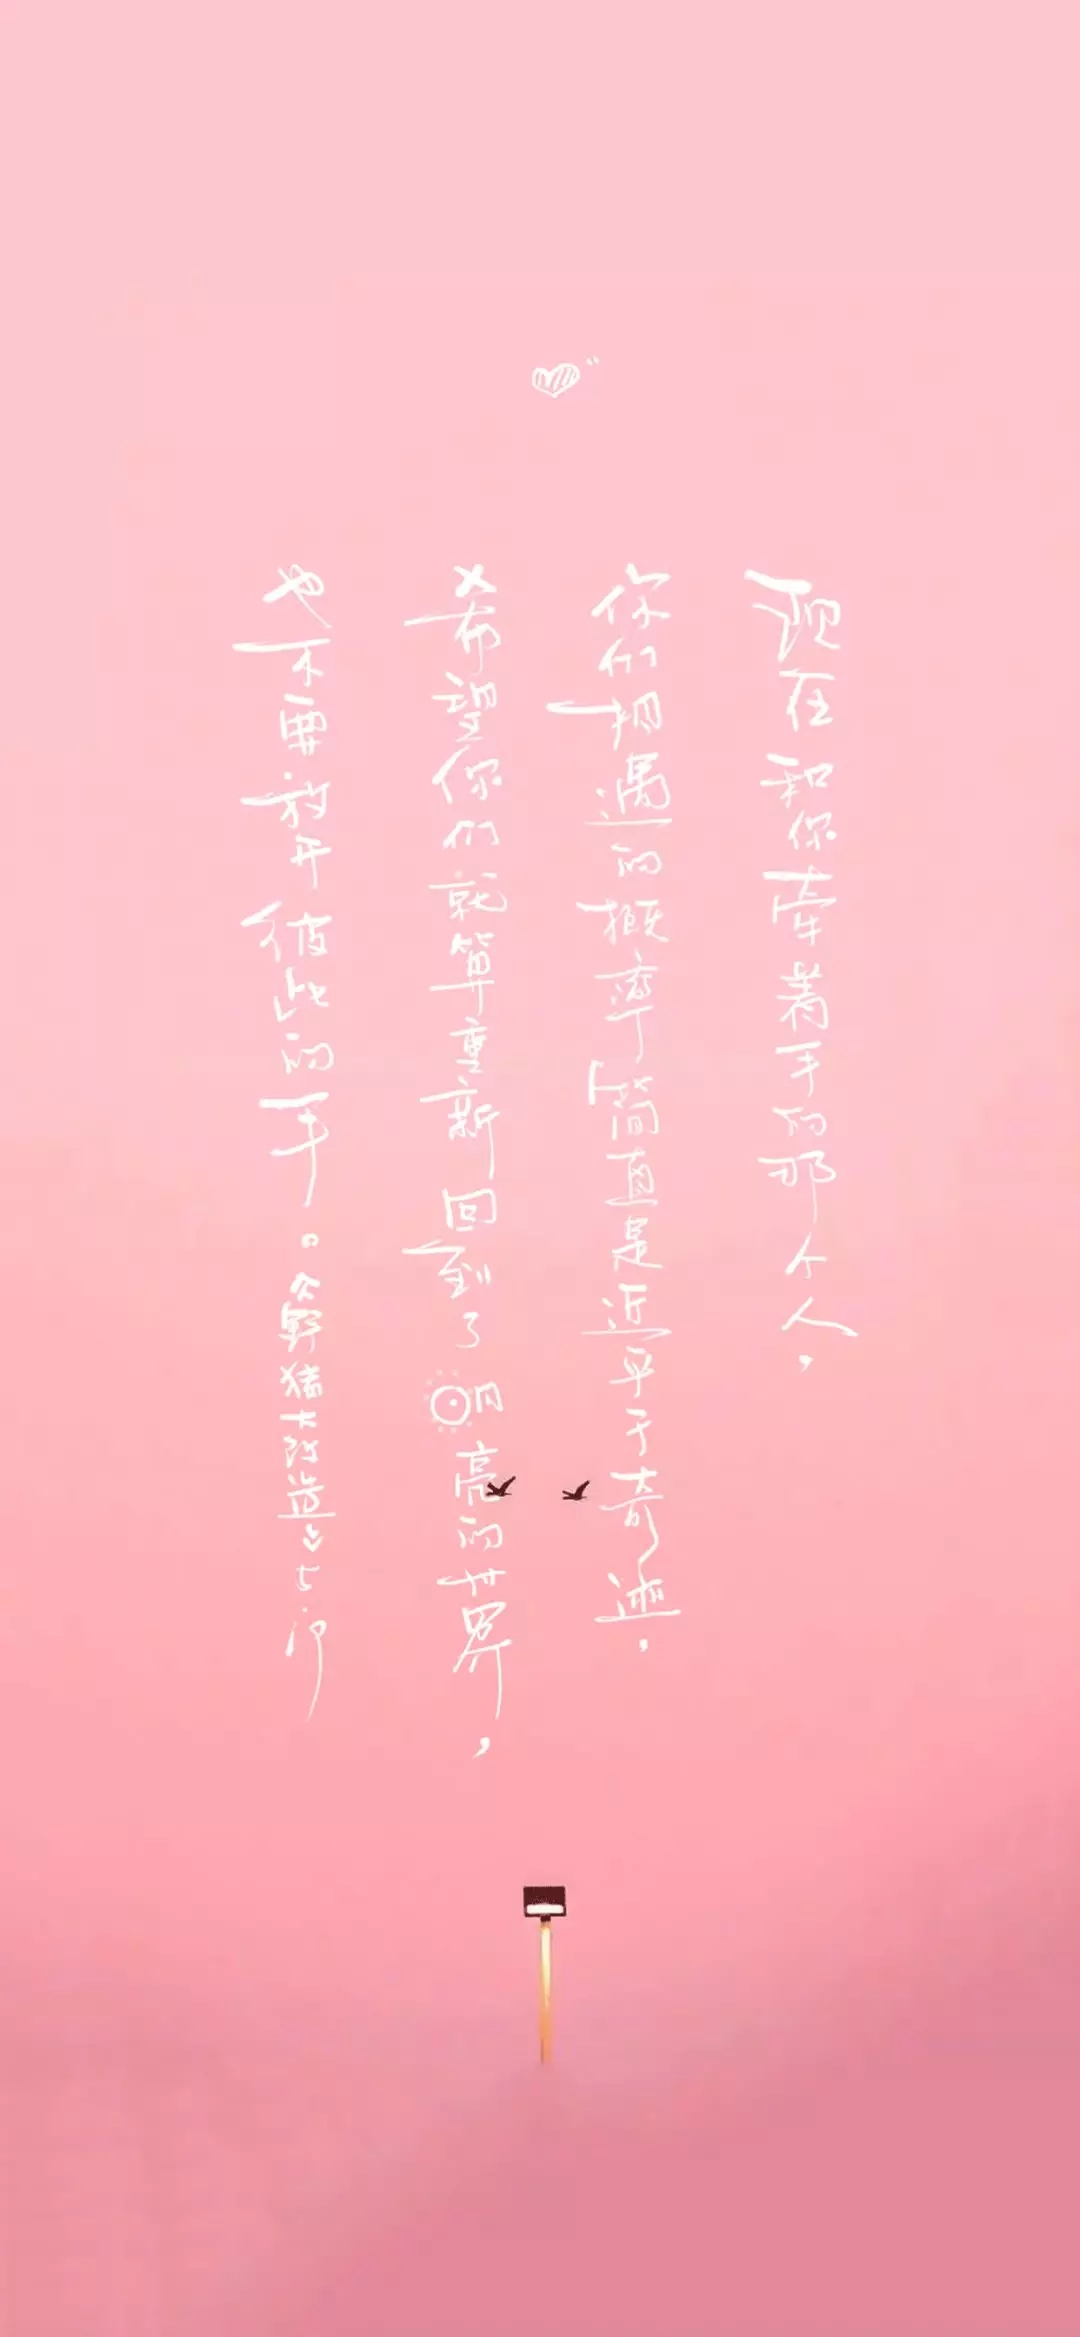 现在和你牵着手的那个人，
你们相遇的概率简直是近乎于奇迹，
希望你们就算重新回到了明亮的世界，
也不要放开彼此的手。野猪大改造